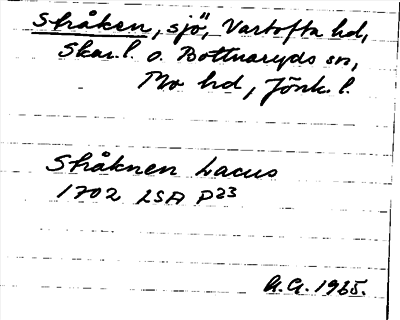 Stråken, sjö, Vartofta hd,
Skar.l. o. Bottnaryds sn,
Mo hd, Jönk. l.
Stråknen Lacus
1702 LSA P23
A.G. 1965.